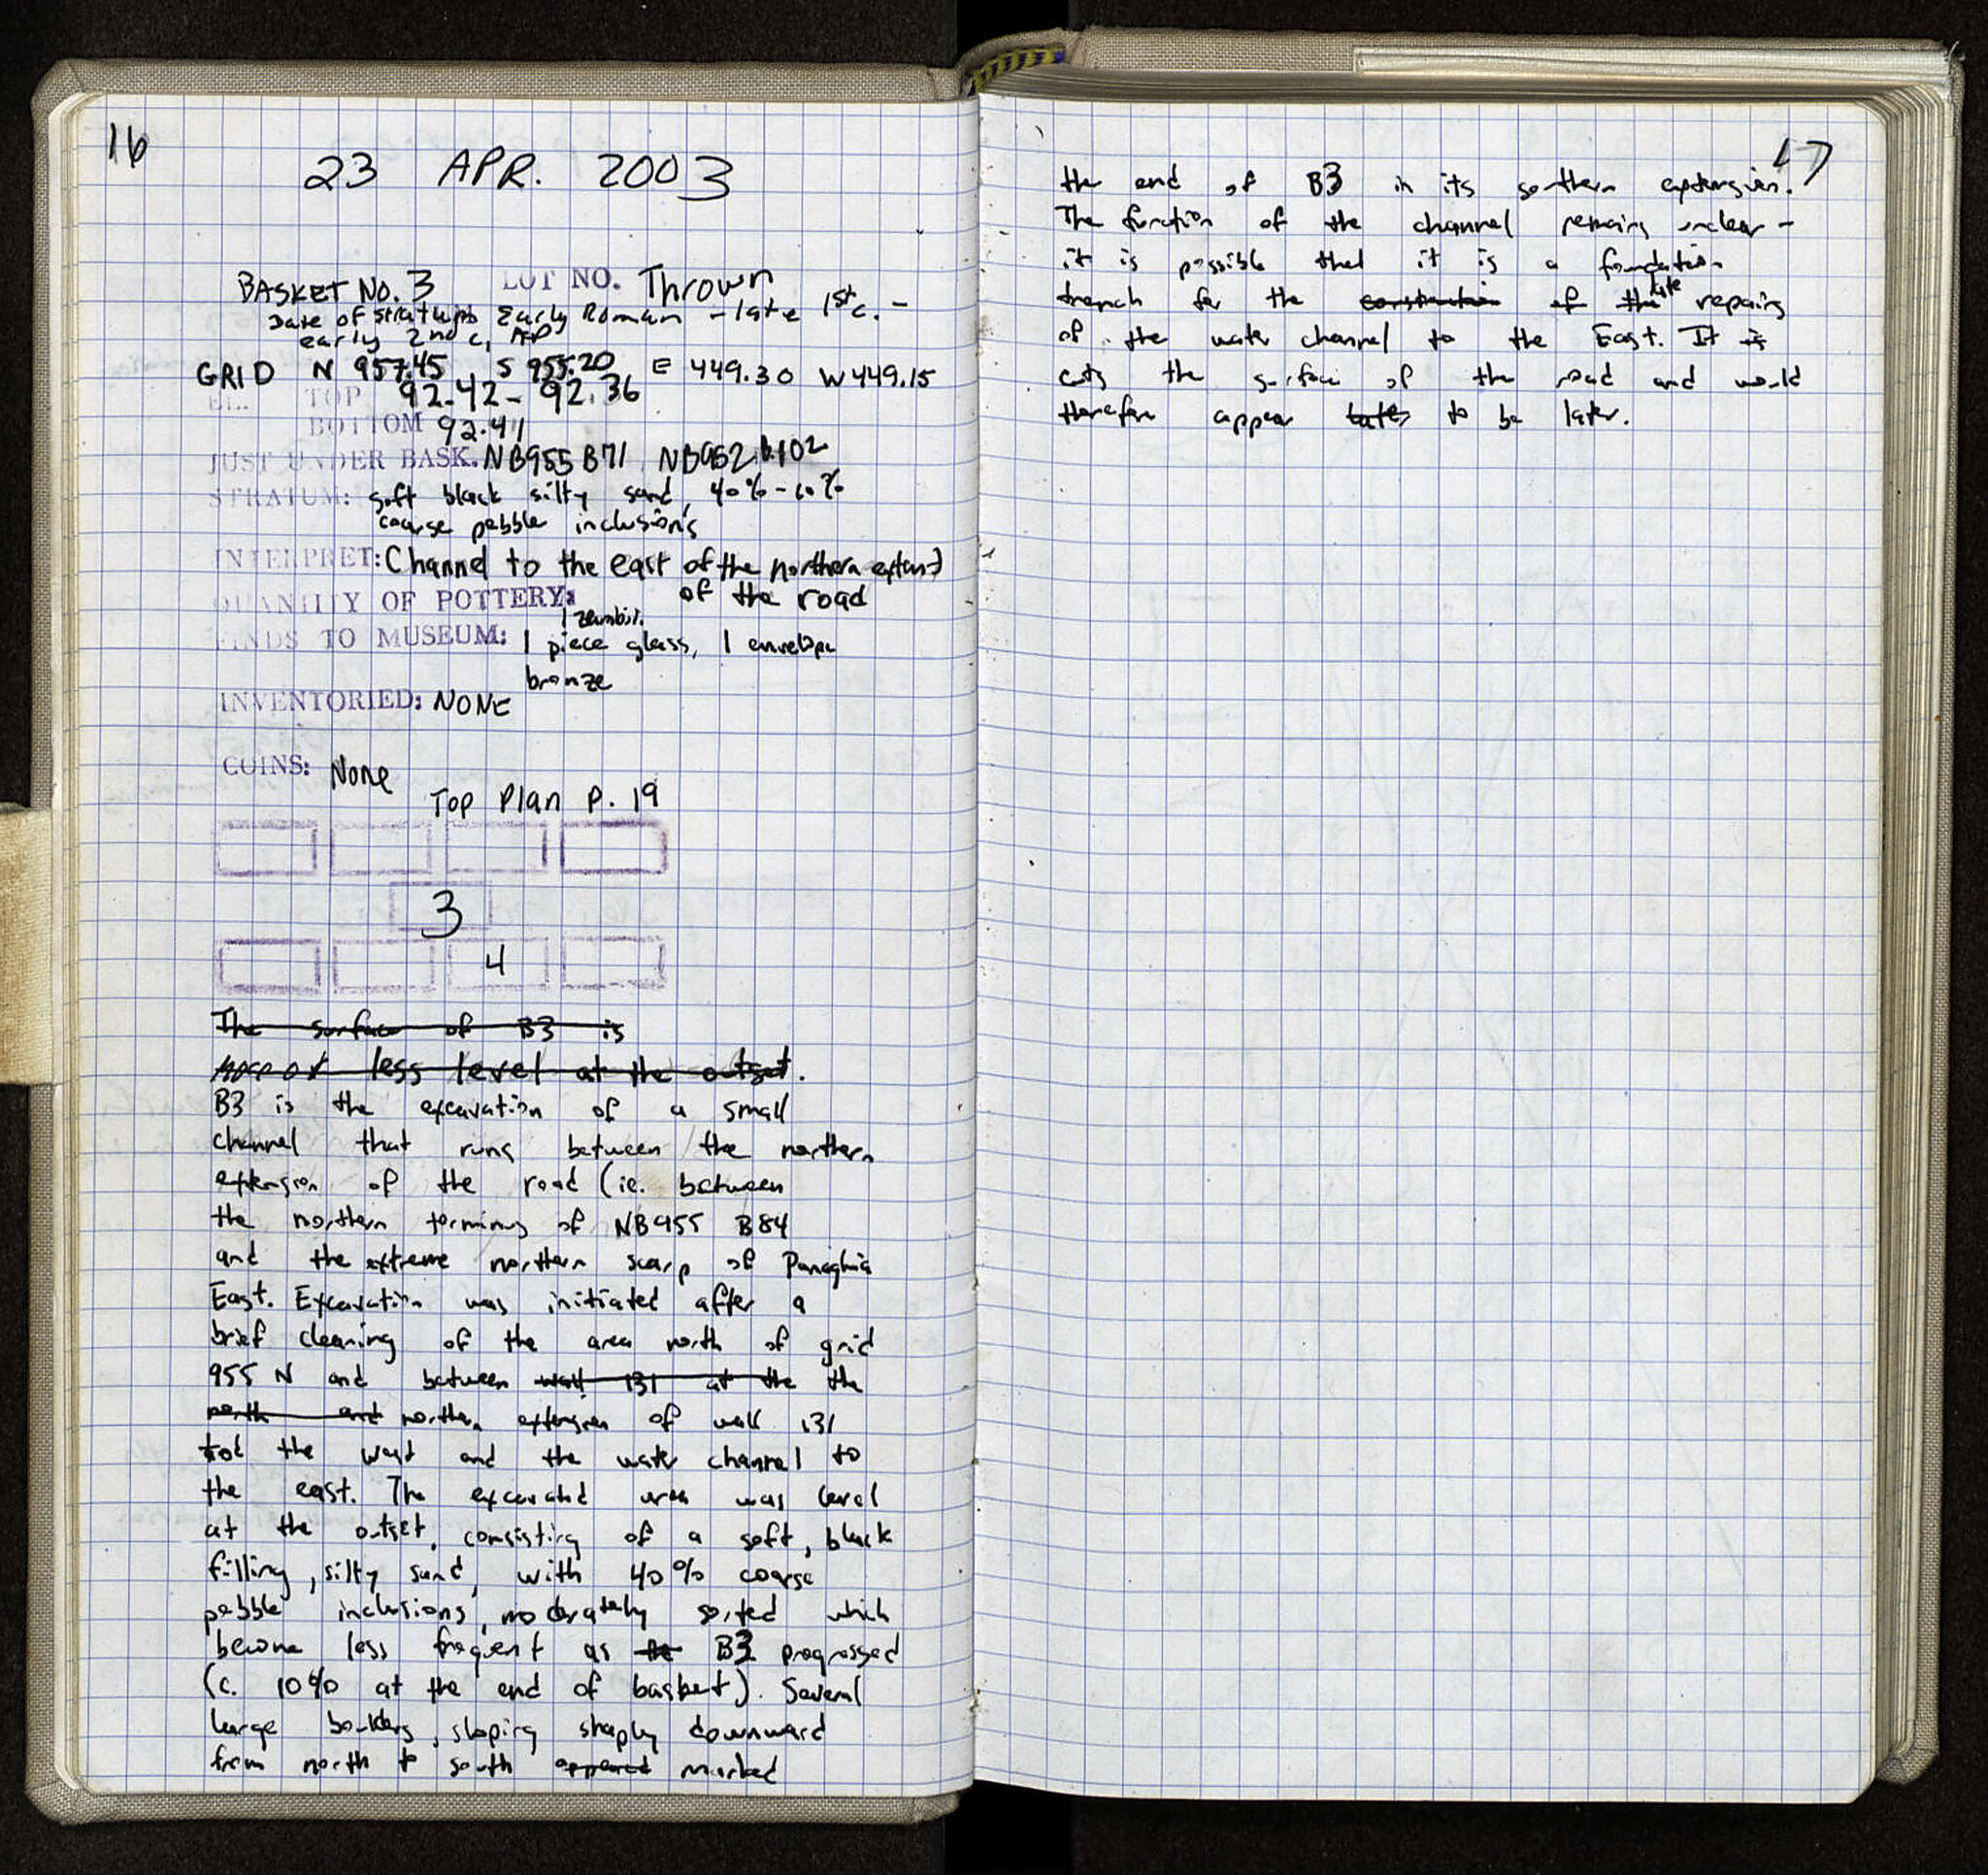 16
23 APR. 2003
BASKET NO. 3 LOT NO. Thrown
Date of stratum Early Roman - late 1st c. -
early 2nd c. AD
GRID N 957.45 S 955.20 E 449.30 W 449.15
EL. TOP 92.42 - 92.36
BOTTOM 92.41
JUST UNDER BASK. NB955 B71 NB952 B.102
STRATUM: soft black silty sand, 40% - 10%
coarse pebble inclusions
INTERPRET: Channel to the east of the northern extent
of the road
QUANTITY OF POTTERY:
1 zembili
FINDS TO MUSEUM: 1 piece glass, 1 envelope
bronze
INVENTORIED: NONE
COINS: None
Top Plan P. 19
3
4
The surface of B3 is
more or less level at the outset.
B3 is the excavation of a small
channel that runs between the northern
extension of the road (ie. between
the northern terminus of NB955 B84
and the extreme northern scarp of Panaghia
East. Excavation was initiated after a
brief cleaning of the area north of grid
955 N and between wall 131 at the the
north and northern extension of wall 131
to the west and the water channel to
the east. The excavated area was level
at the outset, consisting of a soft, black
filling, silty sand, with 40% coarse
pebble inclusions, moderately sorted which
become less frequent as the B3 progressed
(c. 10% at the end of basket). Several
large boulders, sloping sharply downward
from north to south appeared marked
17
the end of B3 in its southern extension.
The function of the channel remains unclear -
it is possible that it is a foundation
trench for the construction of the late repairs
of the water channel to the East. It is
cuts the surface of the road and would
therefore appear later to be later.